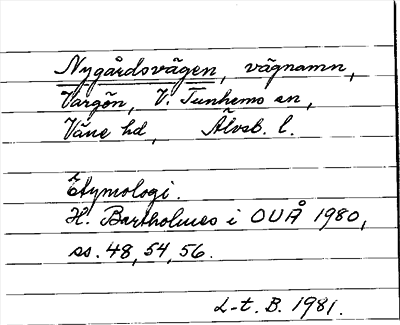 Nygårdsvägen, vägnamn,
Vargön, V. Tunhems sn,
Väne hd, Älvsb. l.
Etymologi.
H. Bartholmes i OUÅ 1980,
ss. 48, 54, 56.
L-t. B. 1981.